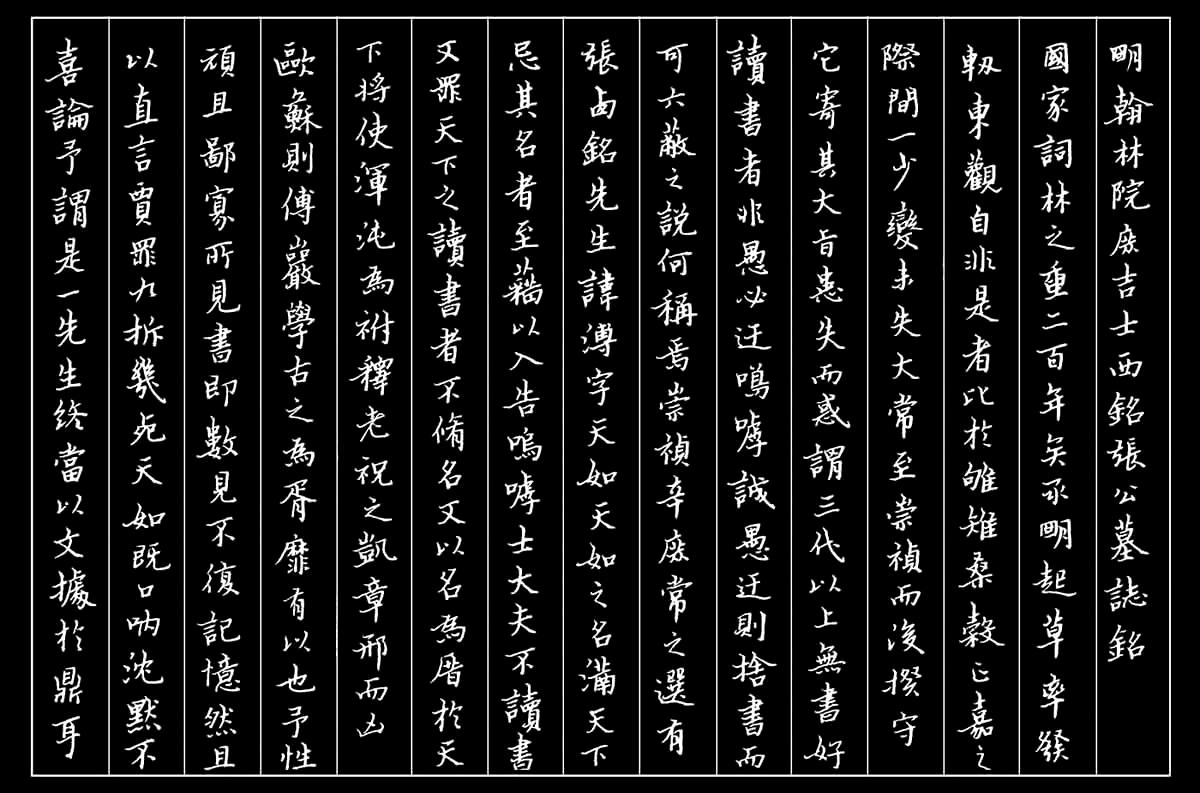 明翰林院庶吉士西銘張公墓誌銘
國家詞林之重二百年矣承明起草率發
軔東觀自非是者比於雊雉桑穀之嘉之
際間一少變未失大常至崇禎而後揆守
它寄其大旨患失而惑謂三代以上無書好
讀書者非愚必迂嗚嘑誠愚迂則捨書而
可六蔽之說何稱焉崇禎辛庶常之選有
張西銘先生諱溥字天如天如之名滿天下
忌其名者至藉以入告嗚嘑士大夫不讀書
又罪天下之讀書者不脩名又以名為厝於天
下將使渾沌為祔釋老祝之凱章邢而凶
歐蘇則傅巖學古之為胥靡有以也予性
頑且鄙寡所見書即數見不復記憶然且
以直言賈罪九拆幾死天如既口吶沈默不
喜論予謂是一先生終當以文據於鼎耳